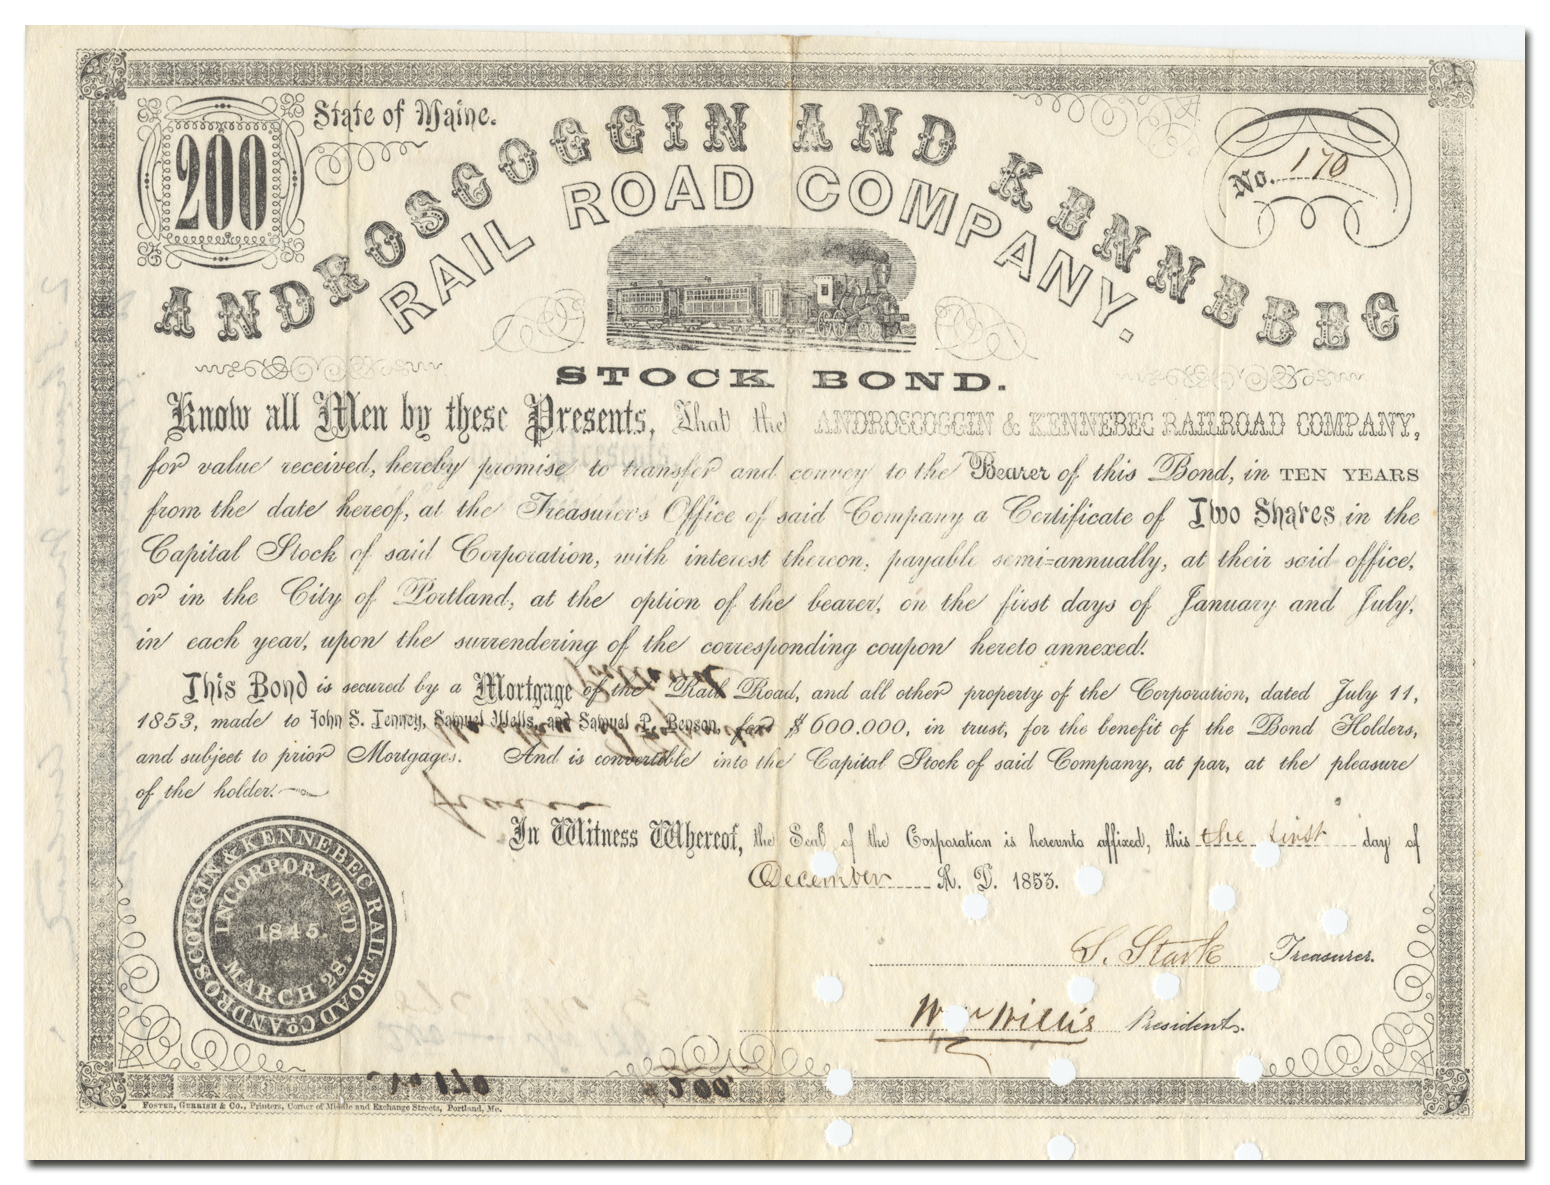 200
State of Maine.
No. 170
ANDROSCOGGIN AND KENNEBEC
RAIL ROAD COMPANY.
STOCK BOND.
Know all Men by these Presents, That the ANDROSCOGGIN & KENNEBEC RAILROAD COMPANY,
for value received, hereby promise to transfer and convey to the Bearer of this Bond, in TEN YEARS
from the date hereof, at the Treasurer's Office of said Company a Certificate of Two Shares in the
Capital Stock of said Corporation, with interest thereon, payable semi-annually, at their said office,
or in the City of Portland, at the option of the bearer, on the first days of January and July,
in each year, upon the surrendering of the corresponding coupon hereto annexed.
This Bond is secured by a Mortgage of the Rail Road, and all other property of the Corporation, dated July 11,
1853, made to John S. Tenney, Samuel Wells, and Samuel P. Benson, for $600.000, in trust, for the benefit of the Bond Holders,
and subject to prior Mortgages. And is convertible into the Capital Stock of said Company, at par, at the pleasure
of the holder.
In Witness Whereof, the Seal of the Corporation is hereunto affixed, this the first day of
December A. D. 1853.
ANDROSCOGGIN & KENNEBEC RAIL ROAD CO.
INCORPORATED
1845.
MARCH 28.
S. Stark Treasurer.
W Willis President.
FOSTER, GERRISH & Co., Printers, Corner of Middle and Exchange Streets, Portland, Me.